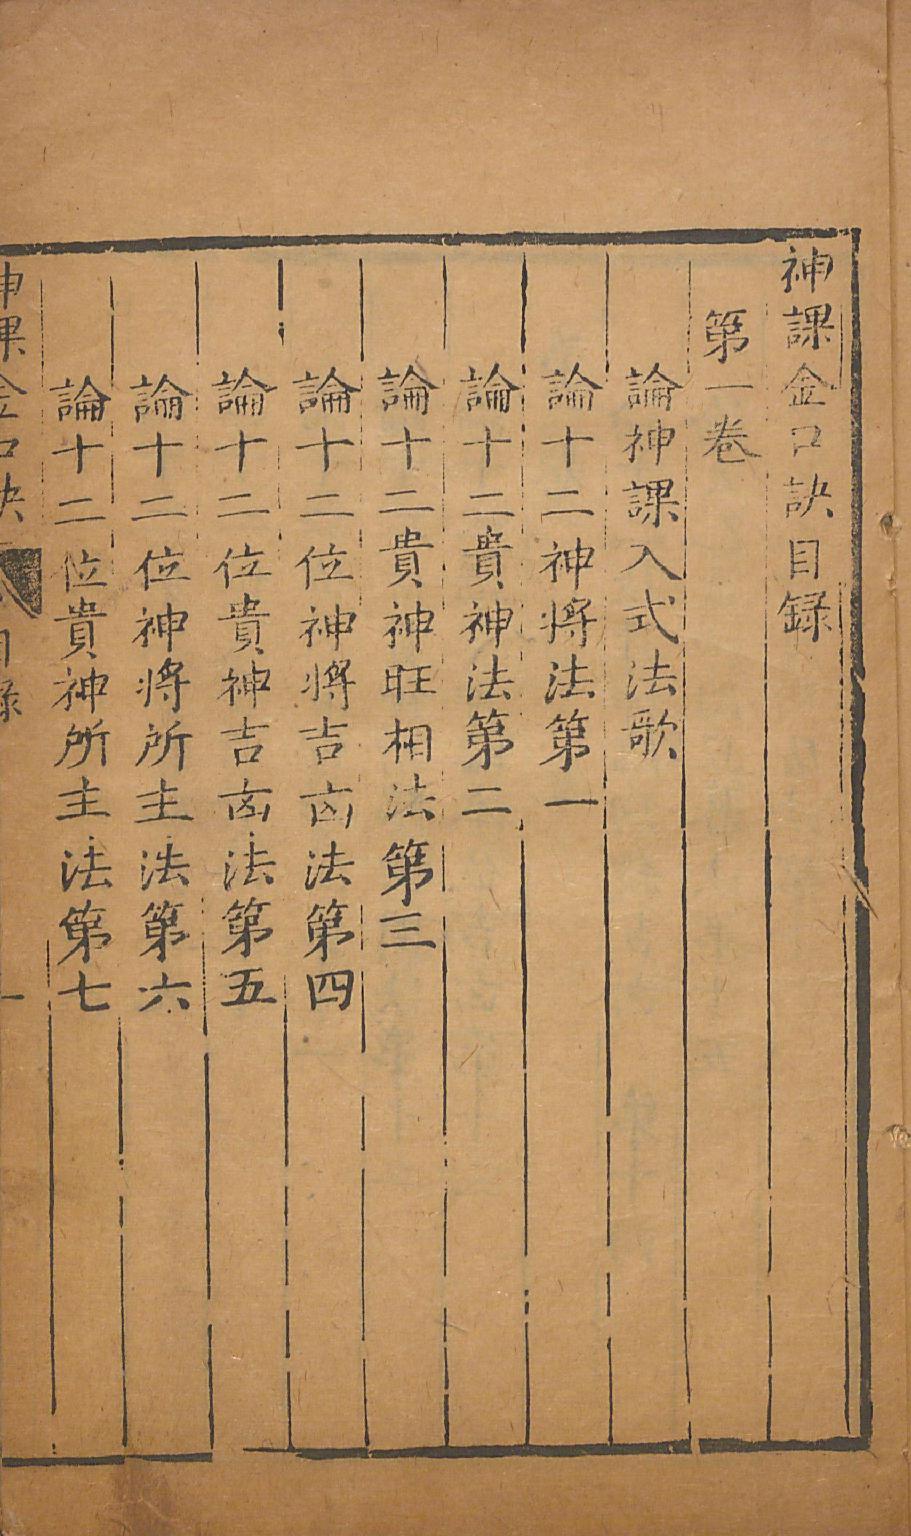 神課金口訣目録
第一卷
論神課入式法歌
論十二神將法第一
論十二貴神法第二
論十二貴神旺相法第三
論十二位神將吉凶法第四
論十二位貴神吉凶法第五
論十二位神將所主法第六
論十二位貴神所主法第七
神課金口訣 目錄 一